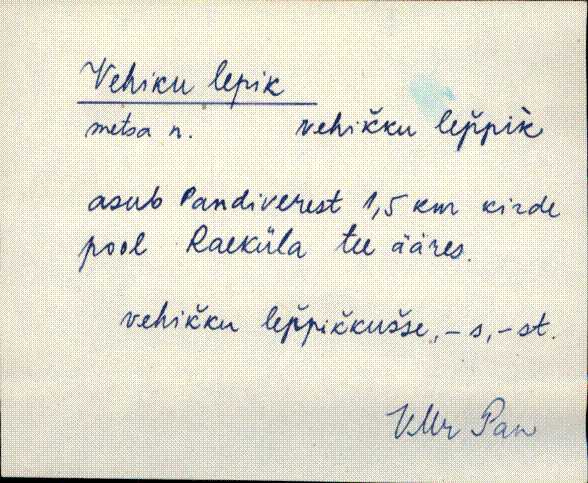 Vehiku lepik
metsa n. vehiǩku lep̌pik̀
asub Pandiverest 1,5 km kirde
pool Raeküla tee ääres.
vehiǩku lep̌piǩkušse, -s, -st.